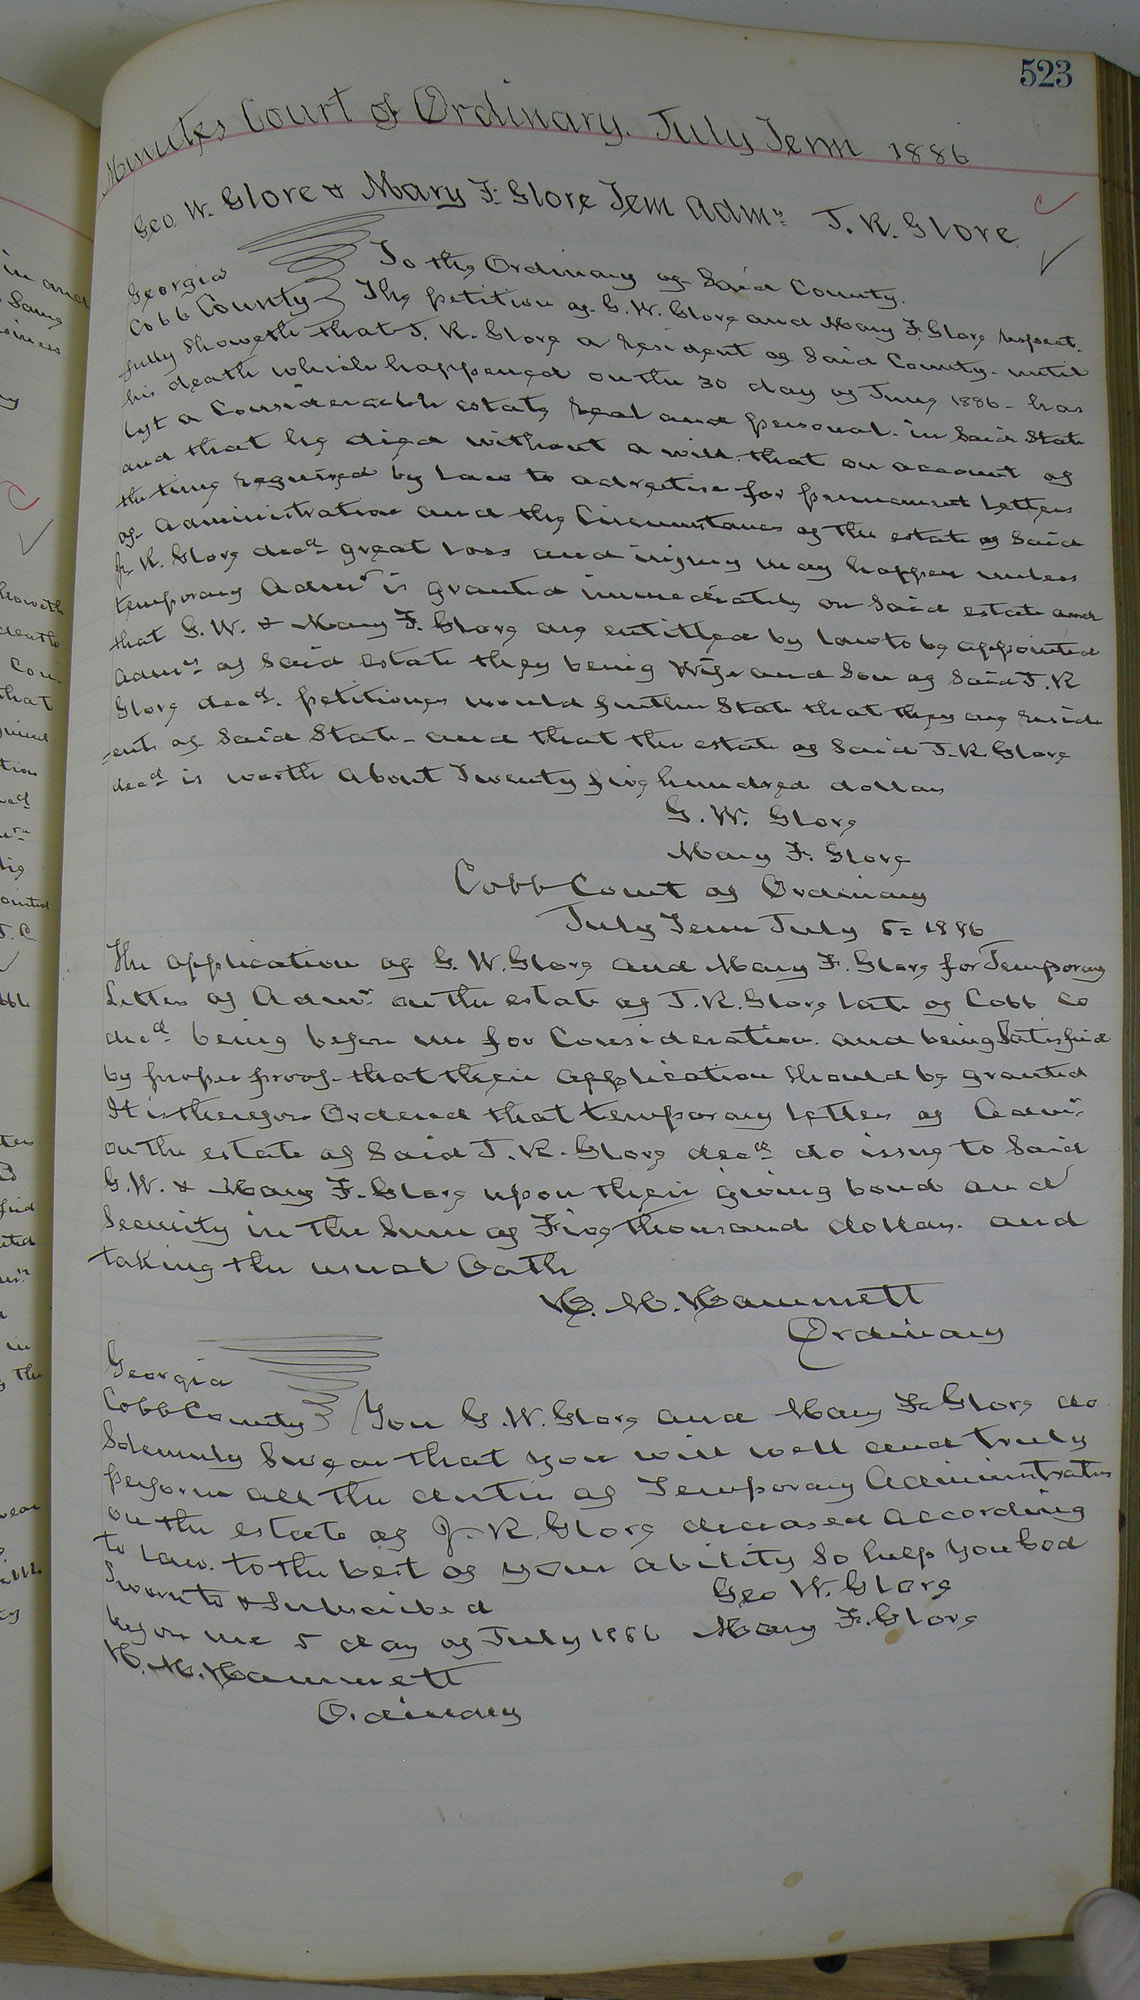 523
Minutes Court of Ordinary. July Term 1886
Geo W. Glore & Mary F. Glore Tem Admrs J. R. Glore
Georgia
To the Ordinary of Said County.
Cobb County
The petition of G. W. Glore and Mary F. Glore respect-
fully Showeth that J. R. Glore a resident of Said County until
his death which happened on the 30 day of June 1886 - has
left a Considerable estate real and personal in Said State
and that he died without a will. that on account of
the time required by law to advertise for permanent Letters
of Administration and the Circumstances of the estate of Said
J. R. Glore decd great loss and injury may happen unless
temporary Admr is granted immediately on Said estate and
that G. W. & Mary F. Glore are entitled by law to be appointed
Admrs of Said estate they being Wife and Son of Said J. R
Glore decd. petitioners would further State that they are resid
=ents of Said State - and that the estate of Said J. R. Glore
decd is worth about Twenty five hundred dollars
G. W. Glore
Mary F. Glore
Cobb Court of Ordinary
July Term July 5= 1886
The application of G. W. Glore and Mary F. Glore for Temporary
Letters of Admr on the estate of J. R. Glore late of Cobb Co
decd being before me for Consideration. and being Satisfied
by proper proof that their application Should be granted
It is therefore Ordered that temporary letters of Admr
on the estate of Said J. R. Glore decd do issue to Said
G. W. & Mary F. Glore upon their giving bond and
Security in the Sum of Five thousand dollars. and
taking the usual Oath
H. M. Hammett
Ordinary
Georgia
Cobb County
You G. W. Glore and Mary F. Glore do
Solemnly Swear that you will well and truly
perform all the duties of Temporary Administrators
on the estate of J. R. Glore deceased according
to law. to the best of your ability So help you God
Sworn to & Subscribed
Geo W. Glore
before me 5 day of July 1886
Mary F. Glore
H. M. Hammett
Ordinary